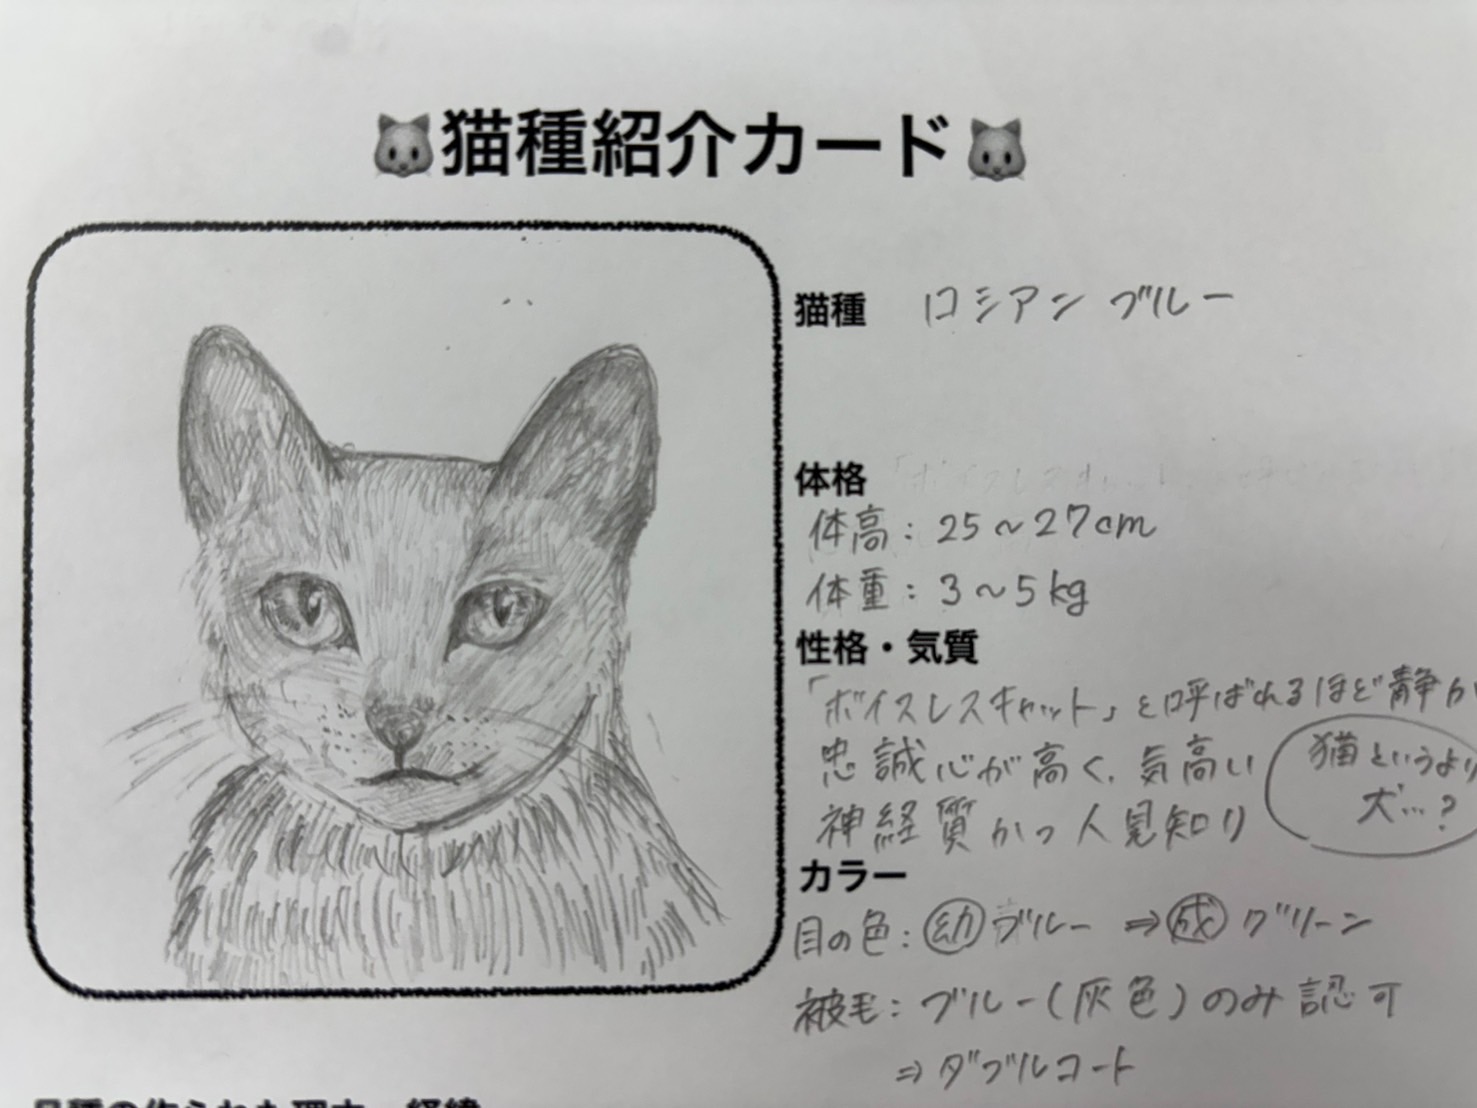 猫種紹介カード
猫種 ロシアンブルー
体格
体高：25～27cm
体重：3～5kg
性格・気質
「ボイスレスキャット」と呼ばれるほど静か
忠誠心が高く、気高い
神経質かつ人見知り
猫というより
犬…？
カラー
目の色：幼ブルー ⇒ 成グリーン
被毛：ブルー(灰色)のみ認可
⇒ダブルコート